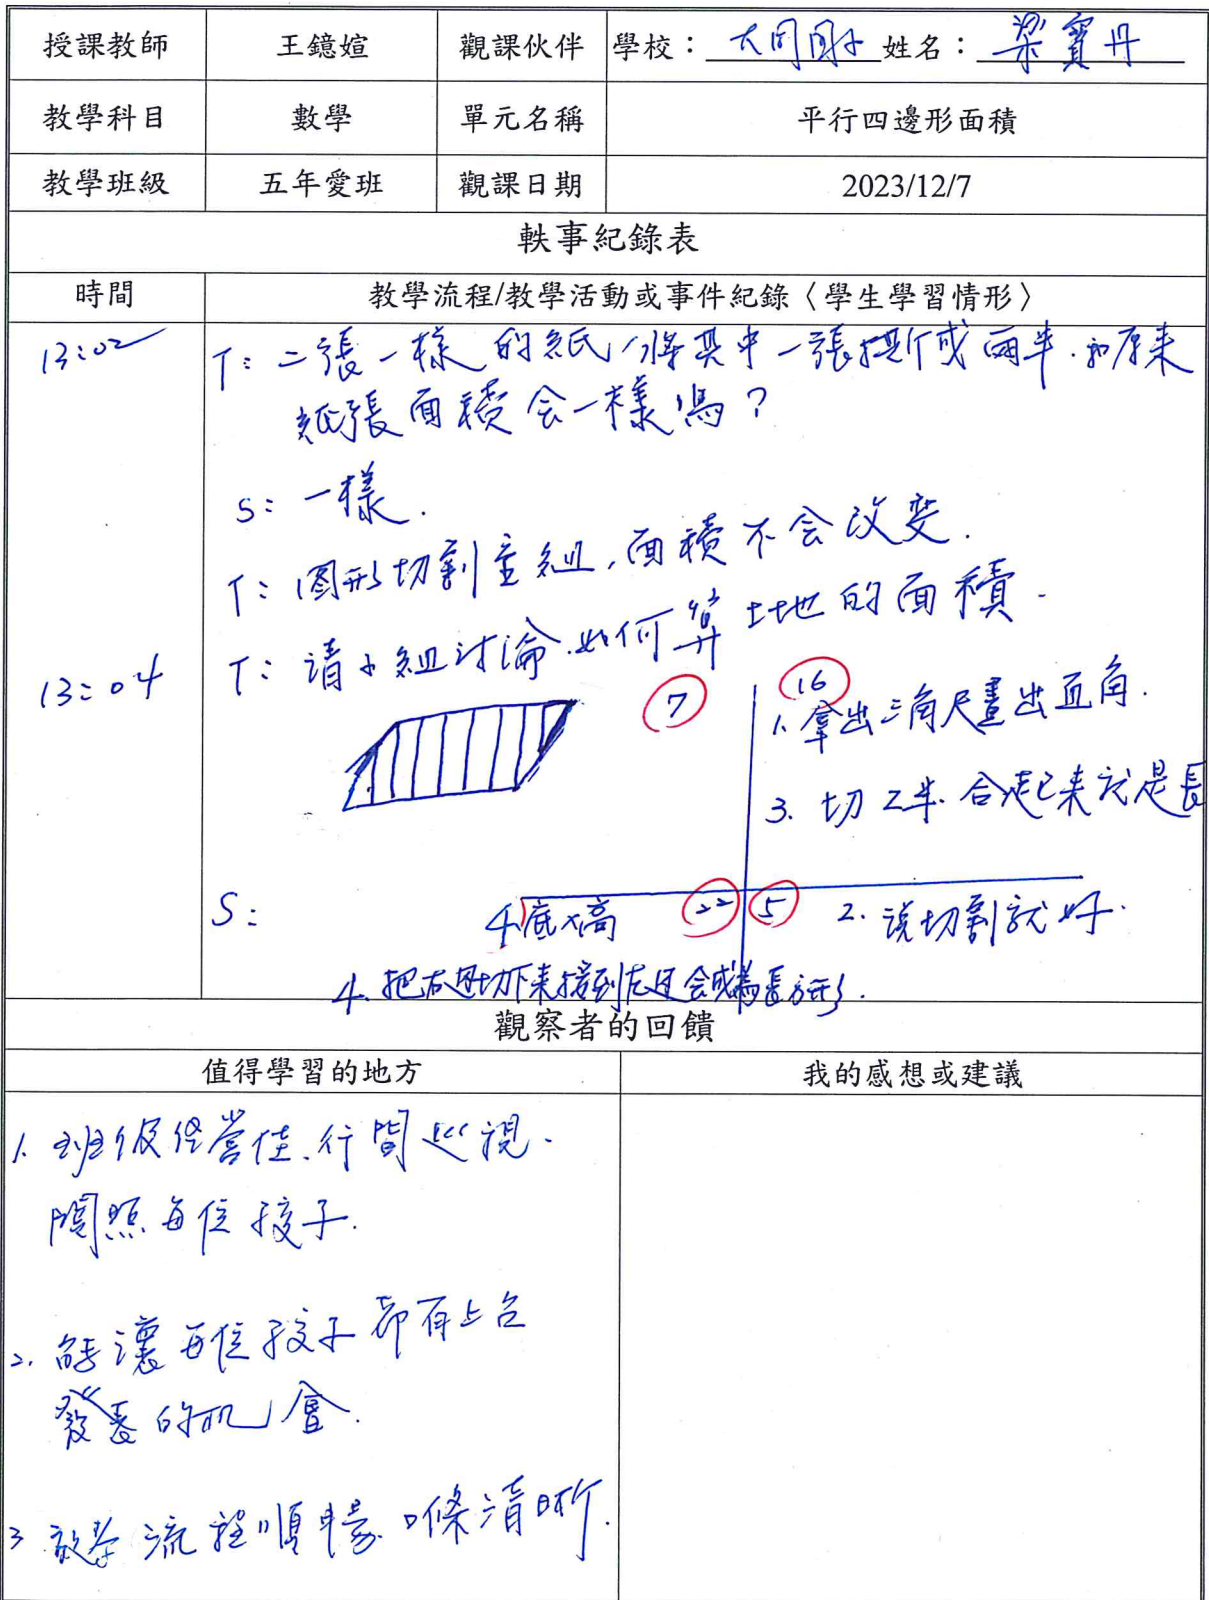 授課教師 王鐿媗 觀課伙伴 學校：大同國小 姓名：梁寶丹
教學科目 數學 單元名稱 平行四邊形面積
教學班級 五年愛班 觀課日期 2023/12/7
軼事紀錄表
時間 教學流程/教學活動或事件紀錄〈學生學習情形〉
13:02 T: 二張一樣的紙，將其中一張撕成兩半.和原來
紙張面積会一樣嗎？
S: 一樣.
T: 圖形切割重組,面積不会改变.
13:04 T: 請小組討論.如何算土地的面積.
7
16
1. 拿出三角尺畫出直角.
3. 切2半.合起來就是長
S:
4.底×高
22
5
2. 說切割就好.
4. 把右邊切下來接到左邊会成為長方形.
觀察者的回饋
值得學習的地方 我的感想或建議
1. 班級經營佳.行間巡視.
關照每位孩子.
2. 能讓每位孩子都有上台
發表的机會.
3 教學流程順暢.條清晰.